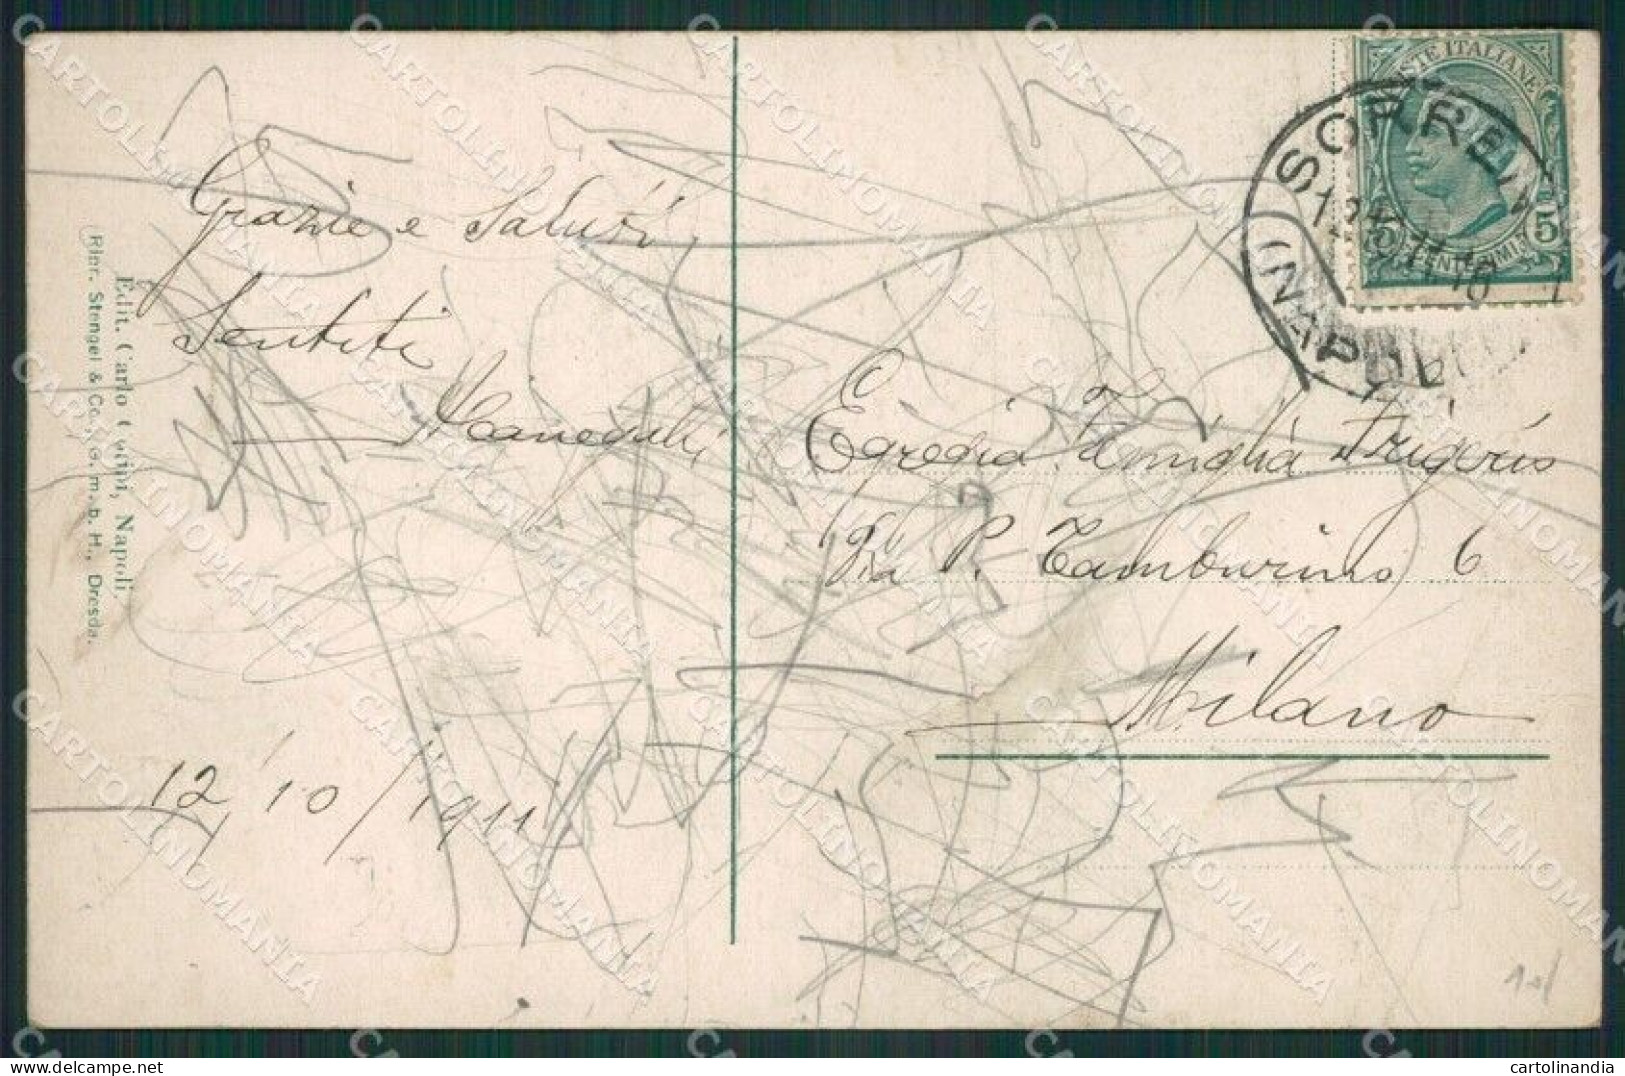 Grazie e Saluti
Sentiti
12/10/1911
Edit. Carlo Cotini, Napoli
Ripr. Stengel & Co., G. m. b. H., Dresda.
POSTE ITALIANE
5 CENTESIMI 5
SORRENTO
(NAPOLI)
Egregia Famiglia Frigerio
Via P. Tamburino 6
Milano
CARTOLINOMANIA
cartolinandia